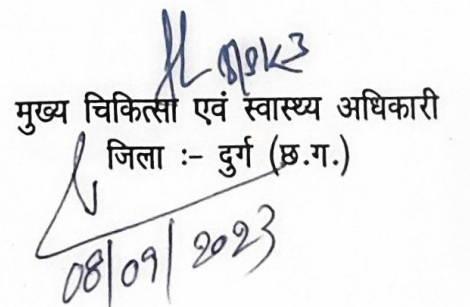 मुख्य चिकित्सा एवं स्वास्थ्य अधिकारी
जिला :- दुर्ग (छ.ग.)
08/09/2023